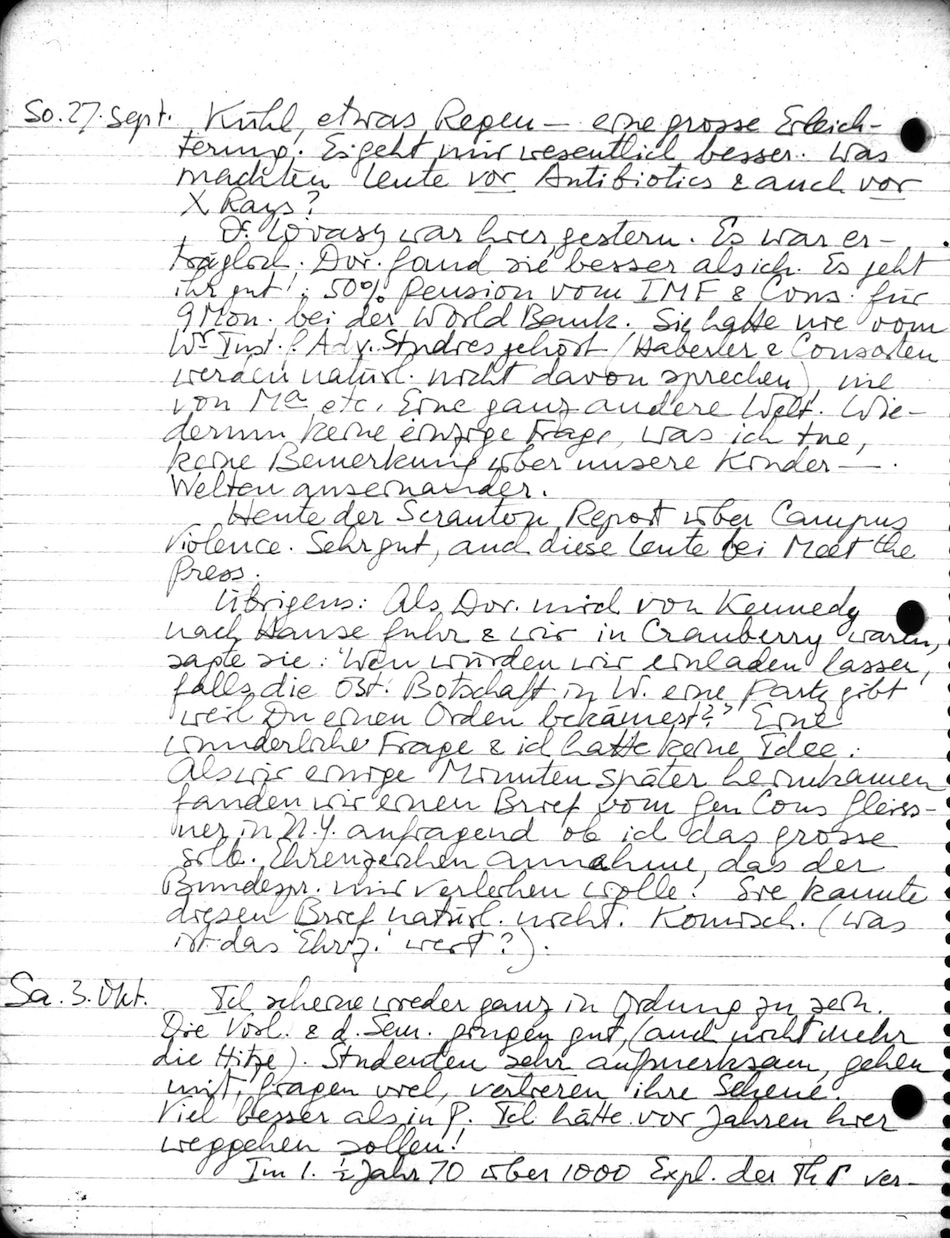 So. 27. Sept. Kühl, etwas Regen — eine grosse Erleich-
terung. Es geht mir wesentlich besser. Was
machten Leute vor Antibiotics & auch vor
X Rays?
Dr. Lovasy war hier gestern. Es war er-
träglich. Dor. fand sie besser als ich. Es geht
ihr gut: 50% Pension vom IMF & Cons. für
9 Mon. bei der World Bank. Sie hatte nie vom
Inst. f. Adv. Studies gehört (Haberler & Consorten
werden natürl. nicht davon sprechen), nie
von Ma etc. Eine ganz andere Welt. Wie-
derum keine einzige Frage, was ich tue,
keine Bemerkung über unsere Kinder —.
Welten auseinander.
Heute der Scranton Report über Campus
Violence. Sehr gut, auch diese Leute bei Meet the
Press.
Übrigens: Als Dor. mich von Kennedy
nach Hause fuhr & wir in Cranberry waren,
sagte sie: "Wen würden wir einladen lassen,
falls die Öst. Botschaft in W. eine Party gibt
weil Du einen Orden bekämest?" Eine
wunderliche Frage & ich hatte keine Idee.
Als wir einige Minuten später heimkamen
fanden wir einen Brief vom Gen Cons Gleiss-
ner in N.Y. anfragend ob ich das grosse
silb. Ehrenzeichen annehme, das der
Bundespr. mir verleihen wolle! Sie kannte
diesen Brief natürl. nicht. Komisch. (Was
ist das 'Ehrz.' wert?).
Sa. 3. Okt. Ich scheine wieder ganz in Ordnung zu sein.
Die Vorl. & d. Sem. gingen gut, (auch nicht mehr
die Hitze). Studenten sehr aufmerksam, gehen
mit, fragen viel, verlieren ihre Scheue.
Viel besser als in P. Ich hätte vor Jahren hier
weggehen sollen!
Im 1. ½ Jahr 70 über 1000 Expl. der ver-